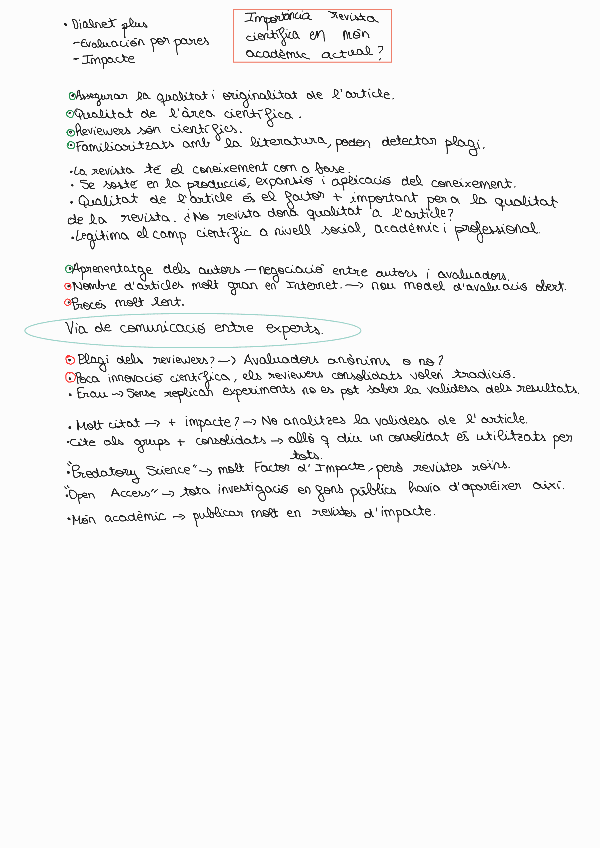 • Dialnet plus
- Evaluación por pares
- Impacte
Importància revista
científica en món
acadèmic actual?
• Assegurar la qualitat i originalitat de l'article.
• Qualitat de l'àrea científica.
• Reviewers són científics.
• Familiaritzats amb la literatura, poden detectar plagi.
• La revista té el coneixement com a base.
• Se sosté en la producció, expansió i aplicació del coneixement.
• Qualitat de l'article és el factor + important per a la qualitat
de la revista. ¿No revista dona qualitat a l'article?
• Legitima el camp científic a nivell social, acadèmic i professional.
• Aprenentatge dels autors — negociació entre autors i avaluadors.
• Nombre d'articles molt gran en Internet. → nou model d'avaluació obert.
• Procés molt lent.
Via de comunicació entre experts.
• Plagi dels reviewers? → Avaluadors anònims o no?
• Poca innovació científica, els reviewers consolidats volen tradició.
• Frau → Sense replicar experiments no es pot saber la validesa dels resultats.
• Molt citat → + impacte? → No analitzes la validesa de l'article.
• Cite als grups + consolidats → allò q diu un consolidat és utilitzats per
tots.
• "Predatory Science" → molt Factor d'Impacte, però revistes roïns.
• "Open Access" → tota investigació en fons públics havia d'aparéixer així.
• Món acadèmic → publicar molt en revistes d'impacte.